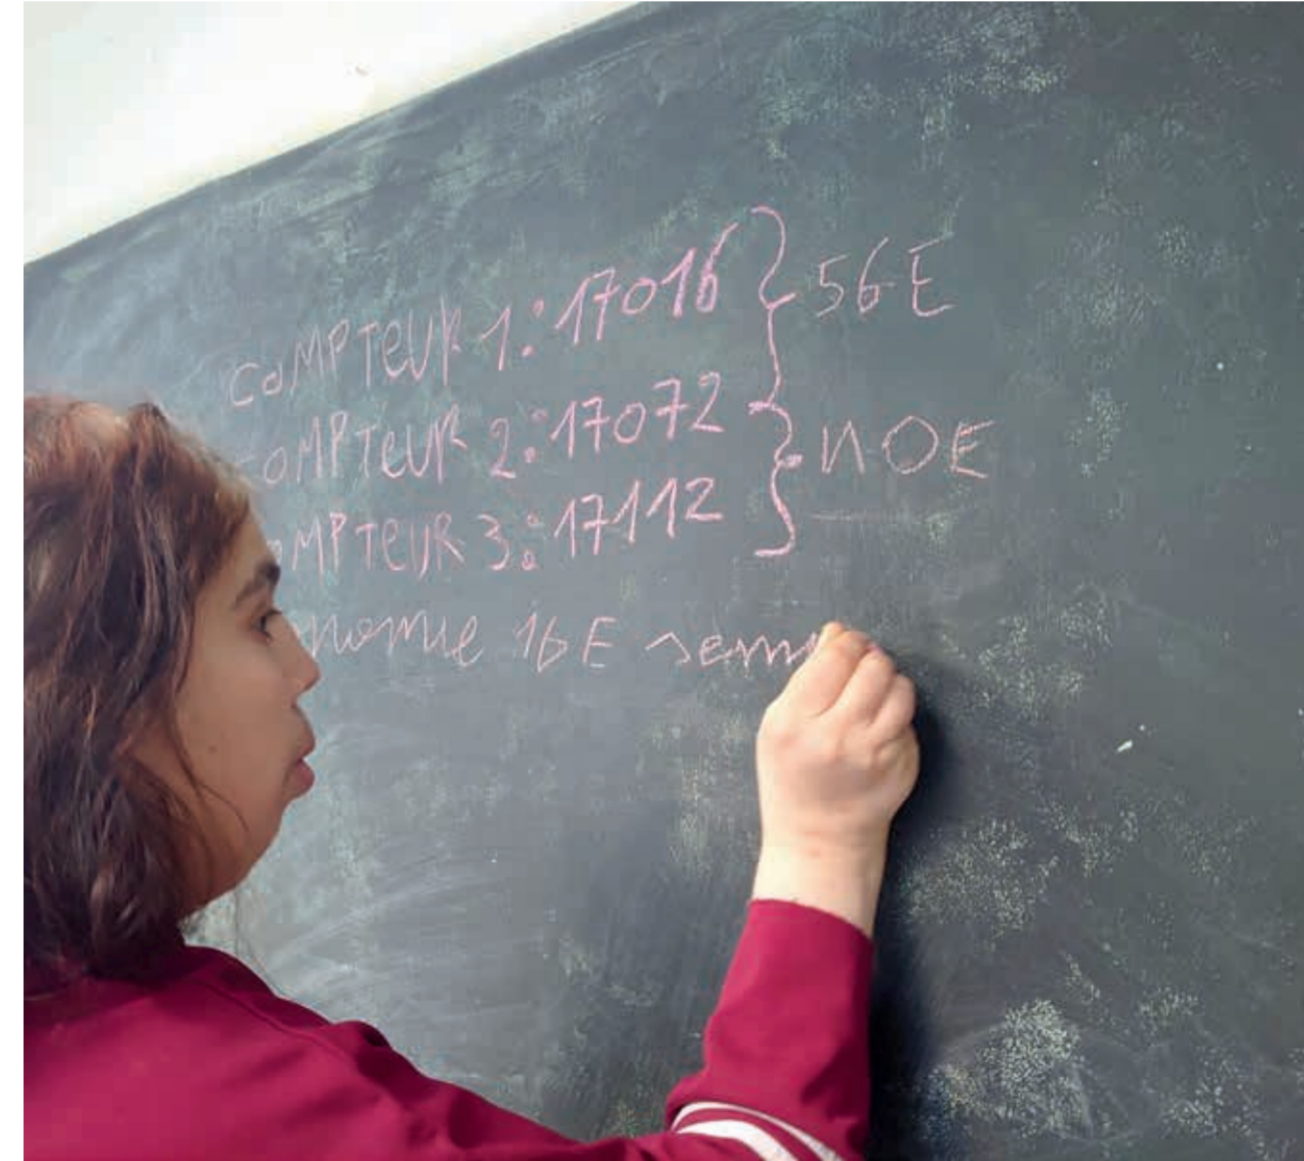 COMPTEUR 1:17016 } 56E
OMPTEUR 2:17072 } 40E
OMPTEUR 3:17112
nomie 16E sem